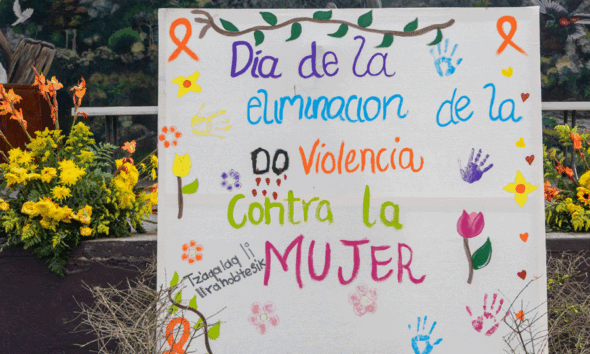 Día de la
eliminacion de la
Violencia
Contra la
MUJER
Tz'aqalaq li